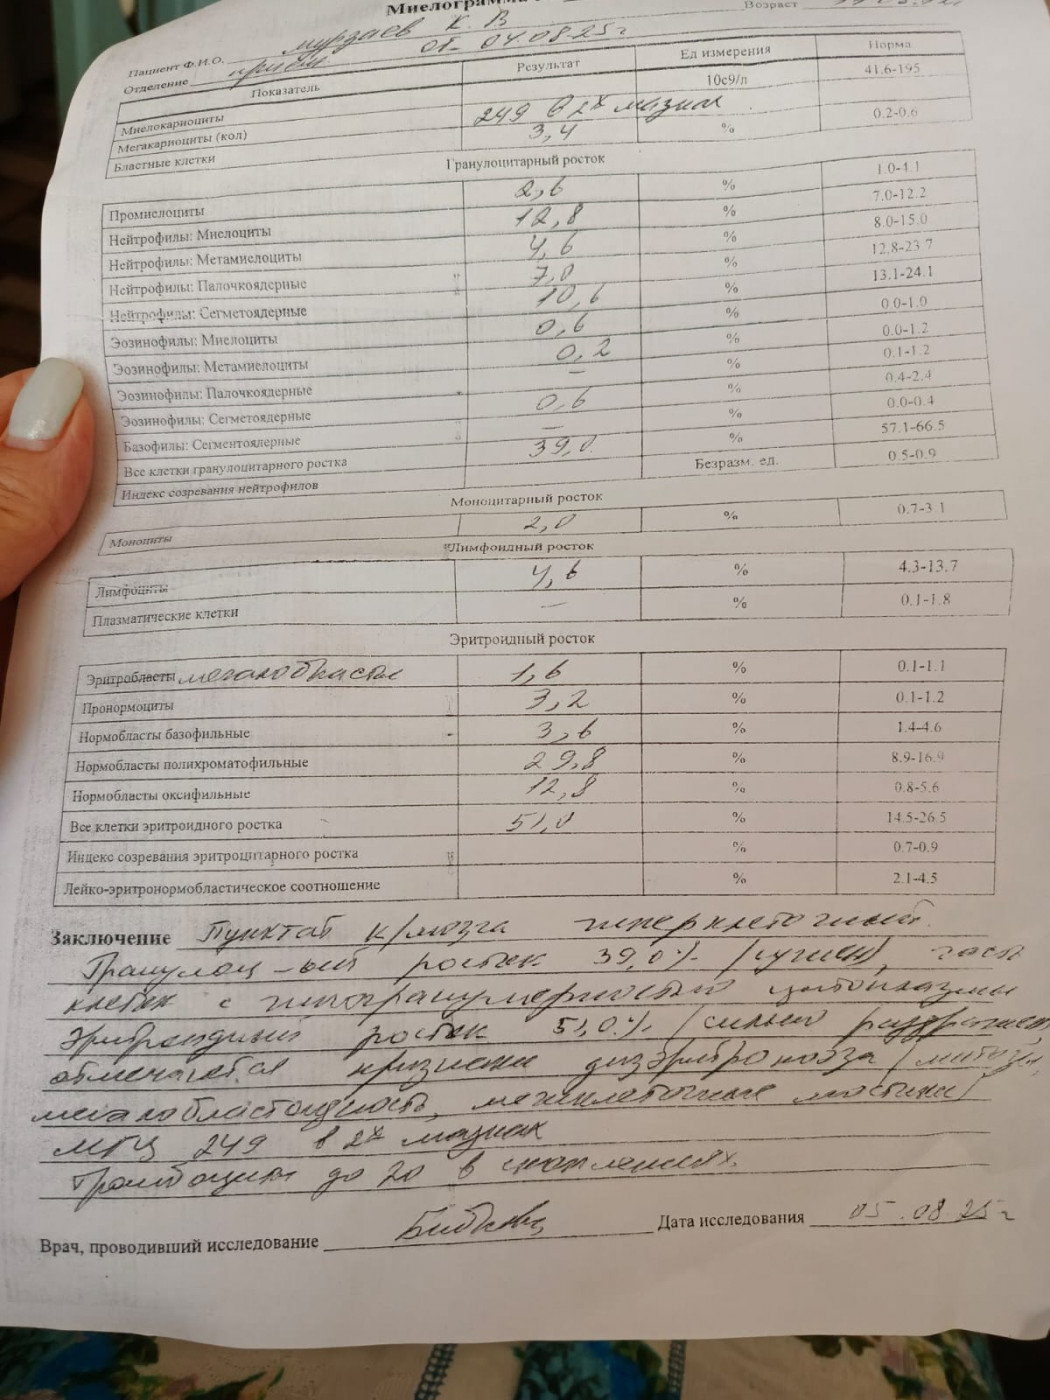 Миелограмма
Пациент Ф.И.О. Мурзаев К. В Возраст
Отделение приём от 04.08.25г
Показатель Результат Ед измерения Норма
Миелокариоциты 10с9/л 41.6-195
Мегакариоциты (кол) 249 в 2х мазках
Бластные клетки 3,4 % 0.2-0.6
Гранулоцитарный росток
Промиелоциты 2,6 % 1.0-4.1
Нейтрофилы: Миелоциты 12,8 % 7.0-12.2
Нейтрофилы: Метамиелоциты 4,6 % 8.0-15.0
Нейтрофилы: Палочкоядерные 7,0 % 12.8-23.7
Нейтрофилы: Сегметоядерные 10,6 % 13.1-24.1
Эозинофилы: Миелоциты 0,6 % 0.0-1.0
Эозинофилы: Метамиелоциты 0,2 % 0.0-1.2
Эозинофилы: Палочкоядерные — % 0.1-1.2
Эозинофилы: Сегметоядерные 0,6 % 0.4-2.4
Базофилы: Сегментоядерные — % 0.0-0.4
Все клетки гранулоцитарного ростка 39,0 % 57.1-66.5
Индекс созревания нейтрофилов Безразм. ед. 0.5-0.9
Моноцитарный росток
Моноциты 2,0 % 0.7-3.1
Лимфоидный росток
Лимфоциты 4,6 % 4.3-13.7
Плазматические клетки — % 0.1-1.8
Эритроидный росток
Эритробласты мегалобласты 1,6 % 0.1-1.1
Пронормоциты 3,2 % 0.1-1.2
Нормобласты базофильные 3,6 % 1.4-4.6
Нормобласты полихроматофильные 29,8 % 8.9-16.9
Нормобласты оксифильные 12,8 % 0.8-5.6
Все клетки эритроидного ростка 51,0 % 14.5-26.5
Индекс созревания эритроцитарного ростка % 0.7-0.9
Лейко-эритронормобластическое соотношение % 2.1-4.5
Заключение Пунктат к/мозга гиперклеточный.
Гранулоц-ый росток 39,0% (сужен), часть
клеток с гипогранулярностью цитоплазмы
Эритроидный росток 51,0% (сильно раздражен,
отмечается признаки дизэритропоэза (митозы,
мегалобластоидность, межклеточные мостики)
МГЦ 249 в 2х мазках
Тромбоциты до 20 в скоплениях.
Врач, проводивший исследование Дата исследования 05.08.25г